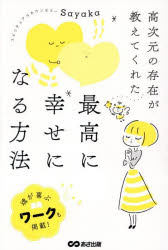 高次元の存在が
教えてくれた
スピリチュアルカウンセラー
Sayaka
最高に
幸せに
なる方法
魂が喜ぶ
ワークも
掲載!
あさ出版